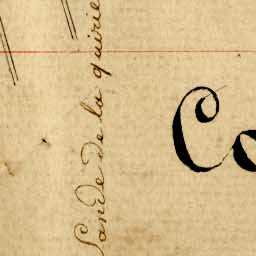 Co
Lande de la quirie